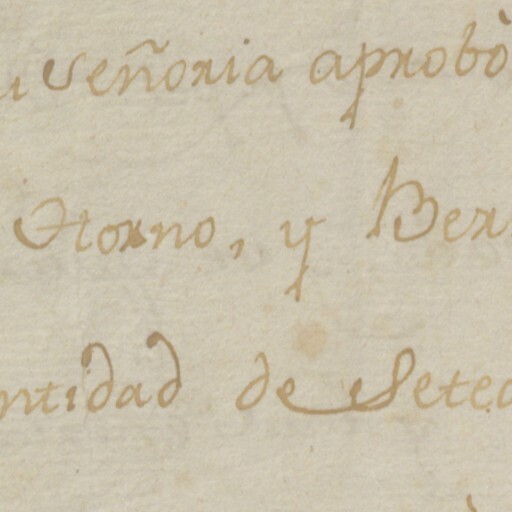 u Señoria aprobò
Otorno, y Ber
ntidad de Setec